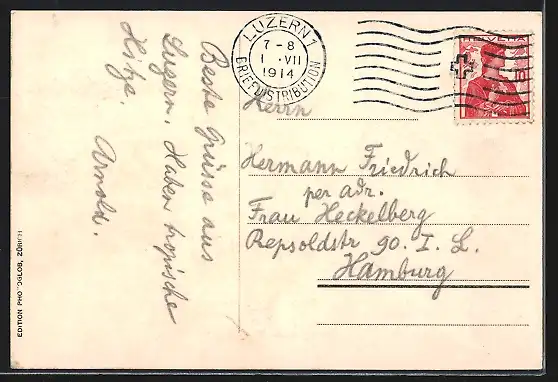 Beste Grüsse aus
Luzern. Haben tropische
Hitze.
Arnold.
LUZERN 1
7-8
1. VII
1914
BRIEFDISTRIBUTION
HELVETIA
10
Herrn
Hermann Friedrich
per adr.
Frau Heckelberg
Repsoldstr 90. I. L.
Hamburg
EDITION PHOTOGLOB, ZÜRICH